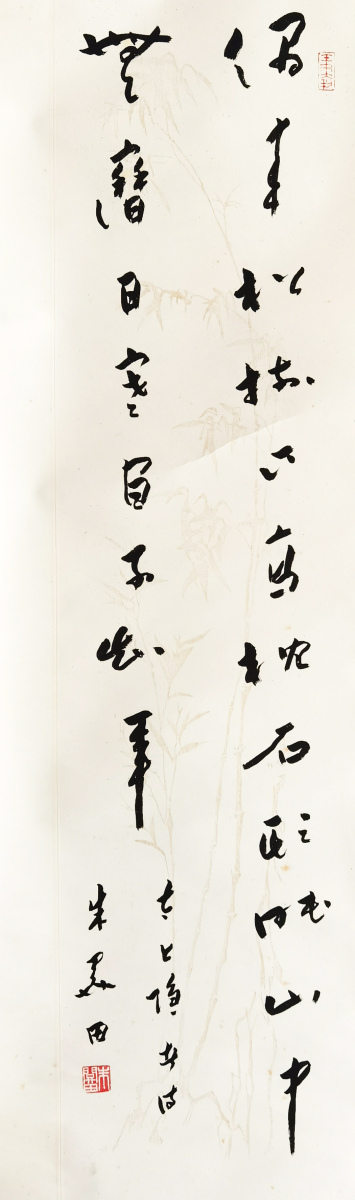 偶来松樹下高枕石頭眠山中
無曆日寒盡不知年
太上隐者诗
朱关田